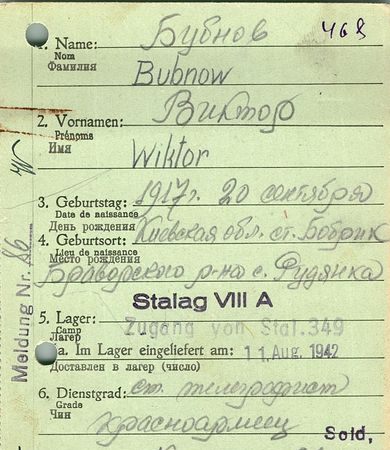 468
1. Name: Бубнов
Nom
Фамилия Bubnow
2. Vornamen: Виктор
Prénoms
Имя Wiktor
3. Geburtstag: 1917 г. 20 сентября
Date de naissance
День рождения
4. Geburtsort: Киевская обл. ст. Бобрик
Lieu de naissance
Место рождения
Браворского р-на с. Рудянка
Stalag VIII A
5. Lager: Zugang von Stal. 349
Camp
Лагерь
a. Im Lager eingeliefert am: 11. Aug. 1942
Доставлен в лагерь (число)
6. Dienstgrad: ст. телеграфист
Grade
Чин красноармеец
Sold,
Meldung Nr. 86